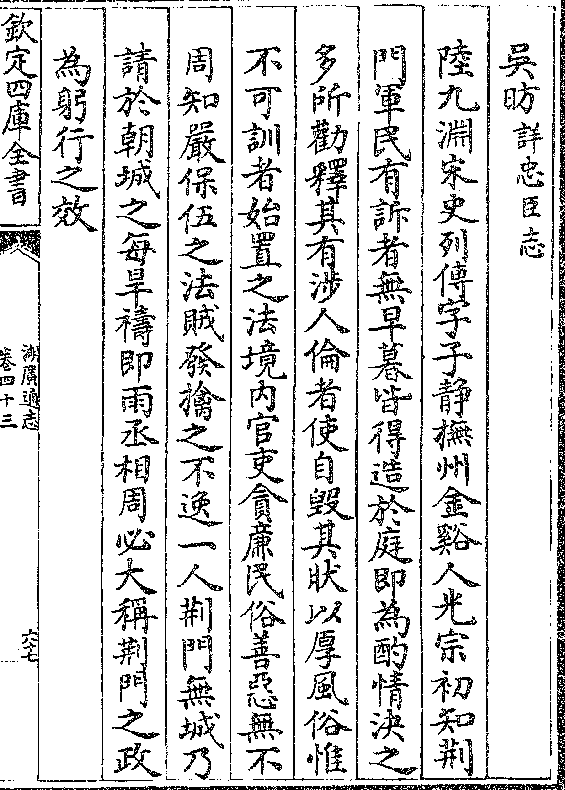 吳昉詳忠臣志
陸九淵宋史列傳字子靜撫州金谿人光宗初知荆
門軍民有訴者無早暮皆得造於庭即為酌情決之
多所勸釋其有涉人倫者使自毀其狀以厚風俗惟
不可訓者始置之法境内官吏貪廉民俗善惡無不
周知嚴保伍之法賊發擒之不逸一人荆門無城乃
請於朝城之每旱禱即雨丞相周必大稱荆門之政
為躬行之效
欽定四庫全書
湖廣通志
卷四十三
六七